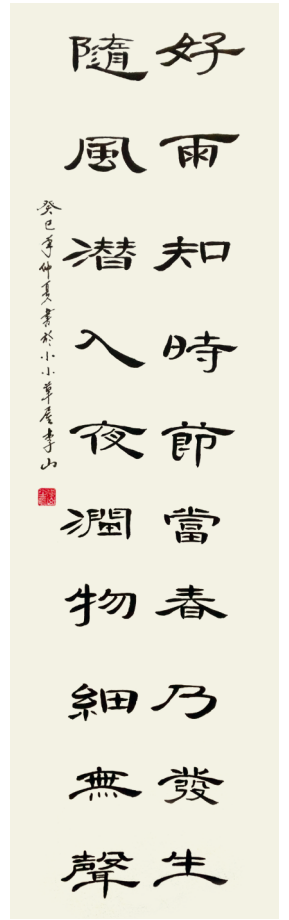 好雨知時節當春乃發生
隨風潜入夜潤物細無聲
癸巳年仲夏書於小小草屋李山